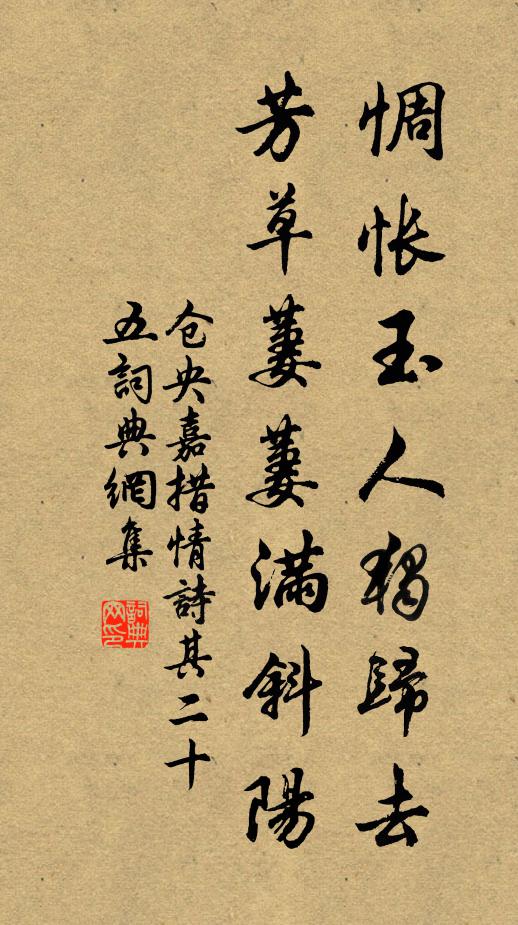 惆悵玉人獨歸去
芳草萋萋滿斜陽
仓央嘉措情詩其二十
五詞典網集
詞典网印